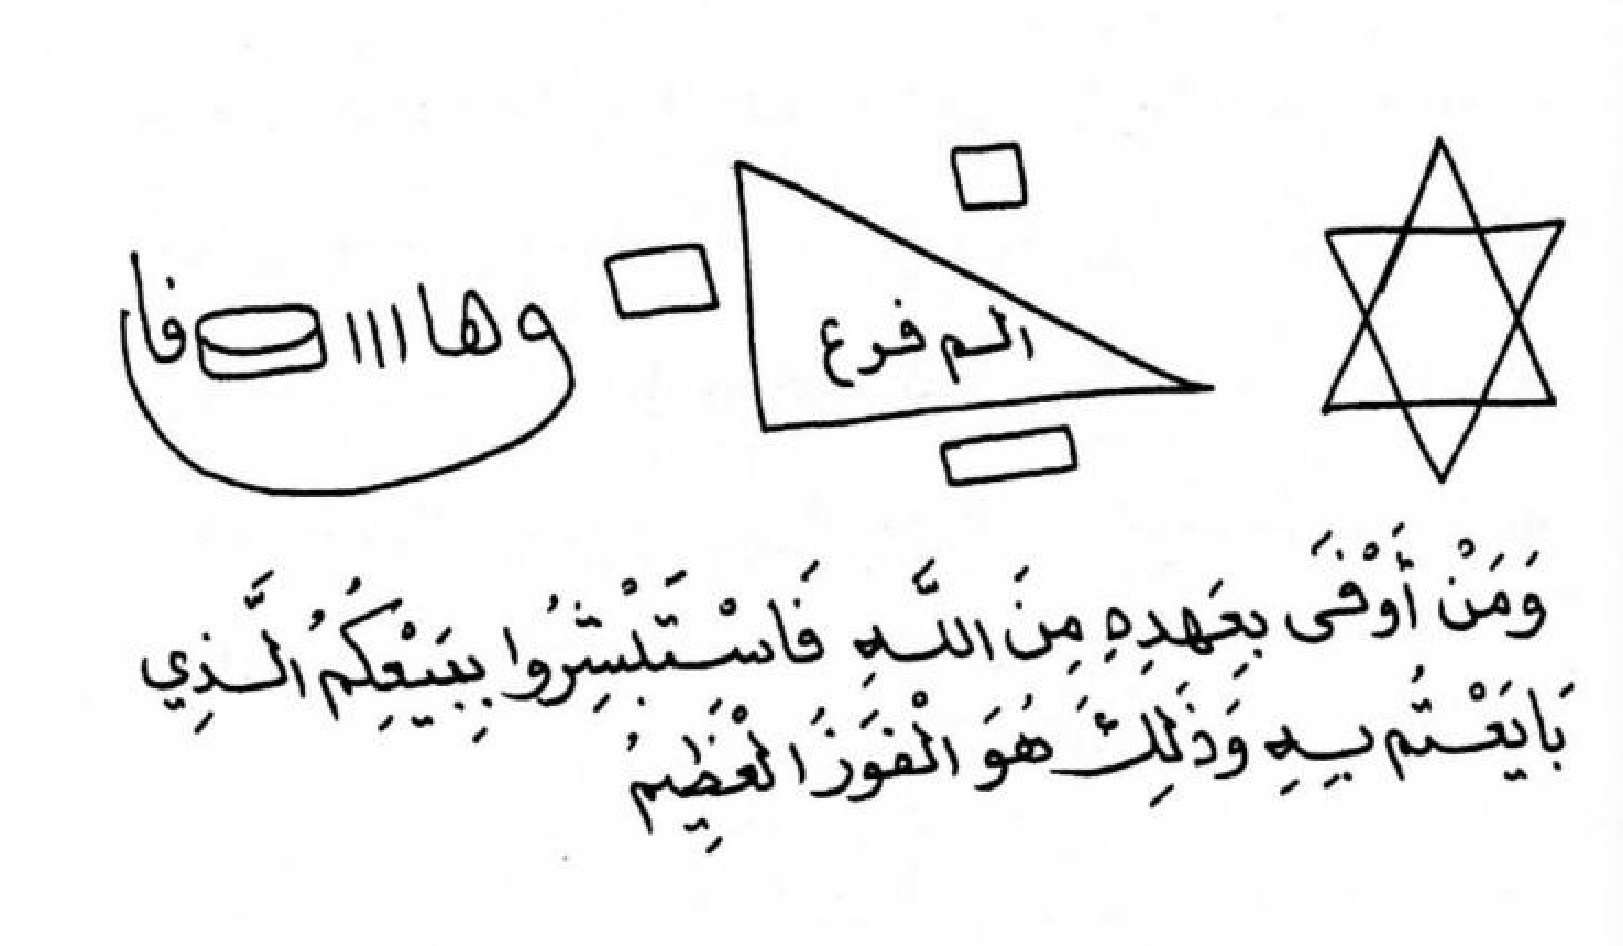 وها ١١١ فا
الم فرع
وَمَنْ أَوْفَى بِعَهدِهِ مِنَ اللَّهِ فَاسْتَبْشِرُوا بِبَيْعِكُمُ الَّذِي
بَايَعْتُم بِهِ وَذَلِكَ هُوَ الْفَوَزَ الْعَظِيمُ